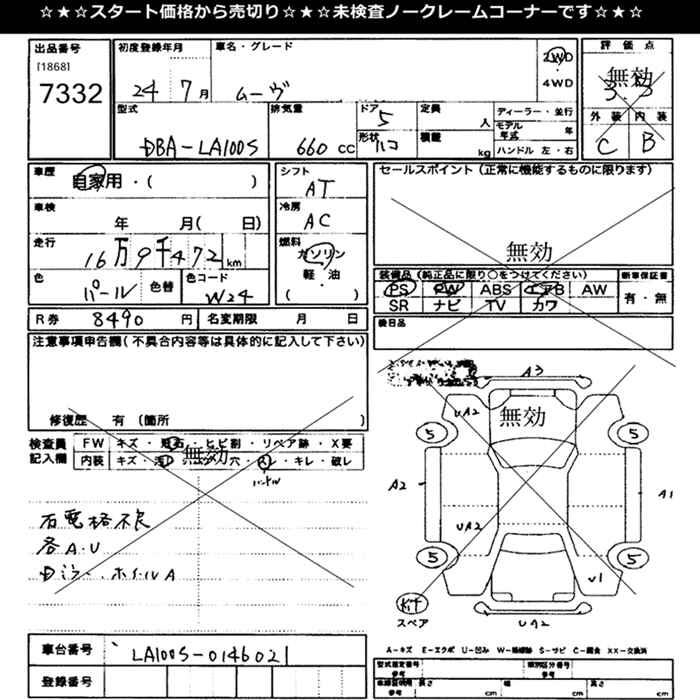 ☆★☆★スタート価格から売切り☆★☆★未検査ノークレームコーナーです☆★☆
出品番号
[1868]
7332
初度登録年月
24年7月
車名・グレード
ムーヴ
2WD
・
4WD
評価点
無効
3.5
外装 内装
C B
型式
DBA-LA100S
排気量
660 cc
ドア
5
形状
ハコ
定員
人
積載
kg
ディーラー・並行
モデル年式 年
ハンドル 左・右
車歴
自家用・( )
車検
年 月( 日)
走行
16万9千472 km
色
パール
色替
色コード
W24
シフト
AT
冷房
AC
燃料
ガソリン
軽・油
( )
セールスポイント(正常に機能するものに限ります)
無効
装備品(純正品に限り○をつけてください)
PS PW ABS エアB AW
SR ナビ TV カワ
新車保証書
有・無
R券 8490 円
名変期限 月 日
後日品
注意事項申告欄(不具合内容等は具体的に記入して下さい)
修復歴 有(箇所
検査員
記入欄
FW キズ・飛石・ヒビ割・リペア跡・X要
内装 キズ・汚レ・コゲ穴・スレ・キレ・破レ
無効
ハンドル
右電格不良
各A・U
ホイールA
無効
A3
UA2
5
5
A2
A1
UA2
5
5
U1
UA2
Kit
スペア
A-キズ E-エクボ U-凹み W-補修跡 S-サビ C-腐食 XX-交換済
車台番号
LA100S-0146021
登録番号
型式指定番号
参考
類別区分番号
参考
車検証明用
参考
長さ cm
幅 cm
高さ cm